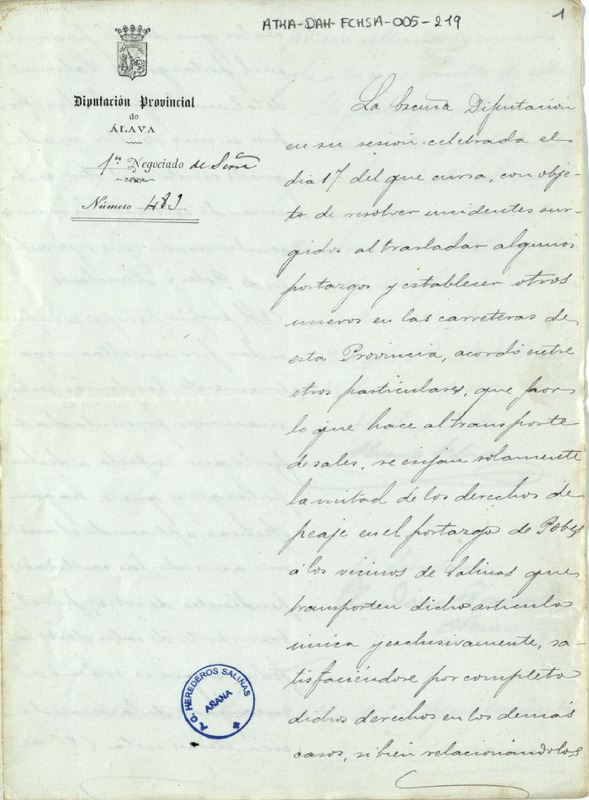 ATHA-DAH-FCHSA-005-219
1
Diputación Provincial
de
ÁLAVA
1er Negociado de Sria
Número 483
La Excma Diputación
en su sesión celebrada el
dia 17 del que cursa, con obje-
to de resolver incidentes sur-
gidos al trasladar algunos
portazgos y establecer otros
nuevos en las carreteras de
esta Provincia, acordó entre
otros particulares, que por
lo que hace al transporte
de sales, se exijan solamente
la mitad de los derechos de
peaje en el portazgo de Pobes
á los vecinos de Salinas que
transporten dicho articulo
única y exclusivamente, sa-
tisfaciéndose por completo
dichos derechos en los demás
casos, si bien relacionándolos
HEREDEROS SALINAS
AÑANA